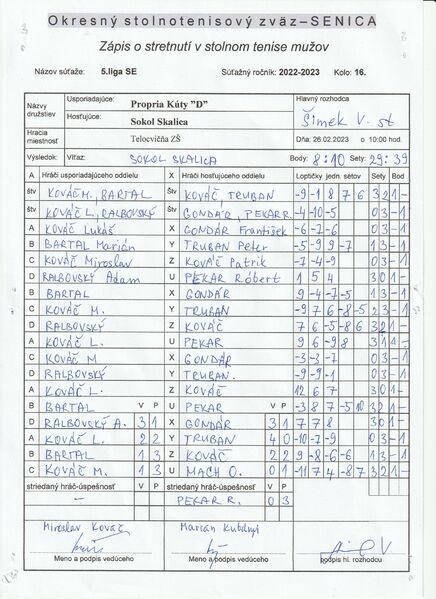 Okresný stolnotenisový zväz–SENICA
Zápis o stretnutí v stolnom tenise mužov
Názov súťaže: 5.liga SE Súťažný ročník: 2022-2023 Kolo: 16.
Názvy družstiev Usporiadajúce: Propria Kúty "D" Hlavný rozhodca
Hosťujúce: Sokol Skalica Šimek V. st
Hracia miestnosť Telocvičňa ZŠ Dňa: 26.02.2023 o 10:00 hod.
Výsledok: Víťaz: SOKOL SKALICA Body: 8:10 Sety: 29:39
A Hráči usporiadajúceho oddielu X Hráči hosťujúceho oddielu Loptičky jedn. setov Sety Bod
štv KOVÁČ M., BARTAL Štv KOVÁČ, TRUBAN -9 -1 8 7 6 3 2 1 -
štv KOVÁČ L., RALBOVSKÝ Štv GONDÁR, PEKAR R. -4 -10 -5 0 3 - 1
A KOVÁČ Lukáš X GONDÁR František -6 -7 -6 0 3 - 1
B BARTAL Marián Y TRUBAN Peter -5 -9 9 -7 1 3 - 1
C KOVÁČ Miroslav Z KOVÁČ Patrik -7 -4 -9 0 3 - 1
D RALBOVSKÝ Adam U PEKAR Róbert 1 5 4 3 0 1 -
B BARTAL X GONDÁR 9 -4 -7 -5 1 3 - 1
C KOVÁČ M. Y TRUBAN -9 7 6 -8 -5 2 3 - 1
D RALBOVSKÝ Z KOVÁČ 7 6 -5 -8 6 3 2 1 -
A KOVÁČ L. U PEKAR 9 6 -9 8 3 1 1 -
C KOVÁČ M X GONDÁR -3 -3 -7 0 3 - 1
D RALBOVSKÝ Y TRUBAN. -9 -9 -1 0 3 - 1
A KOVÁČ L. Z KOVÁČ 12 6 7 3 0 1 -
B BARTAL V P U PEKAR V P -3 8 7 -5 10 3 2 1 -
D RALBOVSKÝ A. 3 1 X GONDÁR 3 1 7 7 8 3 0 1 -
A KOVÁČ L. 2 2 Y TRUBAN 4 0 -10 -7 -9 0 3 - 1
B BARTAL 1 3 Z KOVÁČ 2 2 9 -8 -6 -6 1 3 - 1
C KOVÁČ M. 1 3 U MACH O. 0 1 -11 7 4 -8 7 3 2 1 -
striedaný hráč-úspešnosť V P striedaný hráč-úspešnosť V P
- PEKAR R. 0 3
Miroslav Kováč Marián
Meno a podpis vedúceho Meno a podpis vedúceho podpis hl. rozhodcu